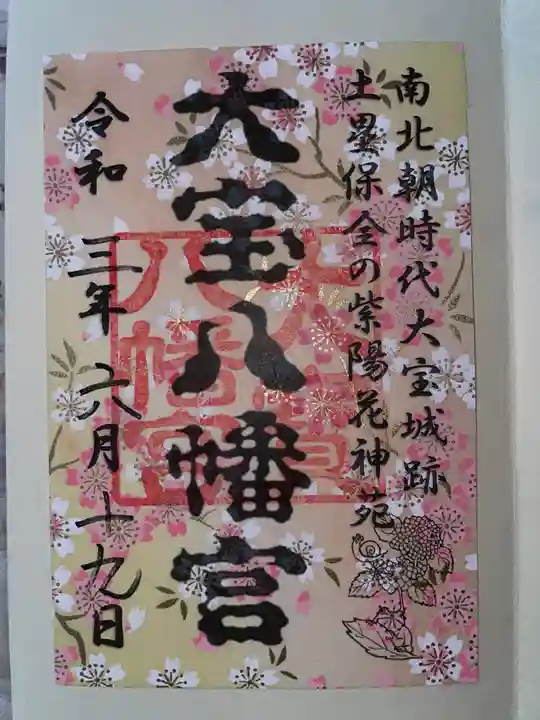 南北朝時代大宝城跡
土塁保全の紫陽花神苑
大宝八幡宮
令和三年六月十九日